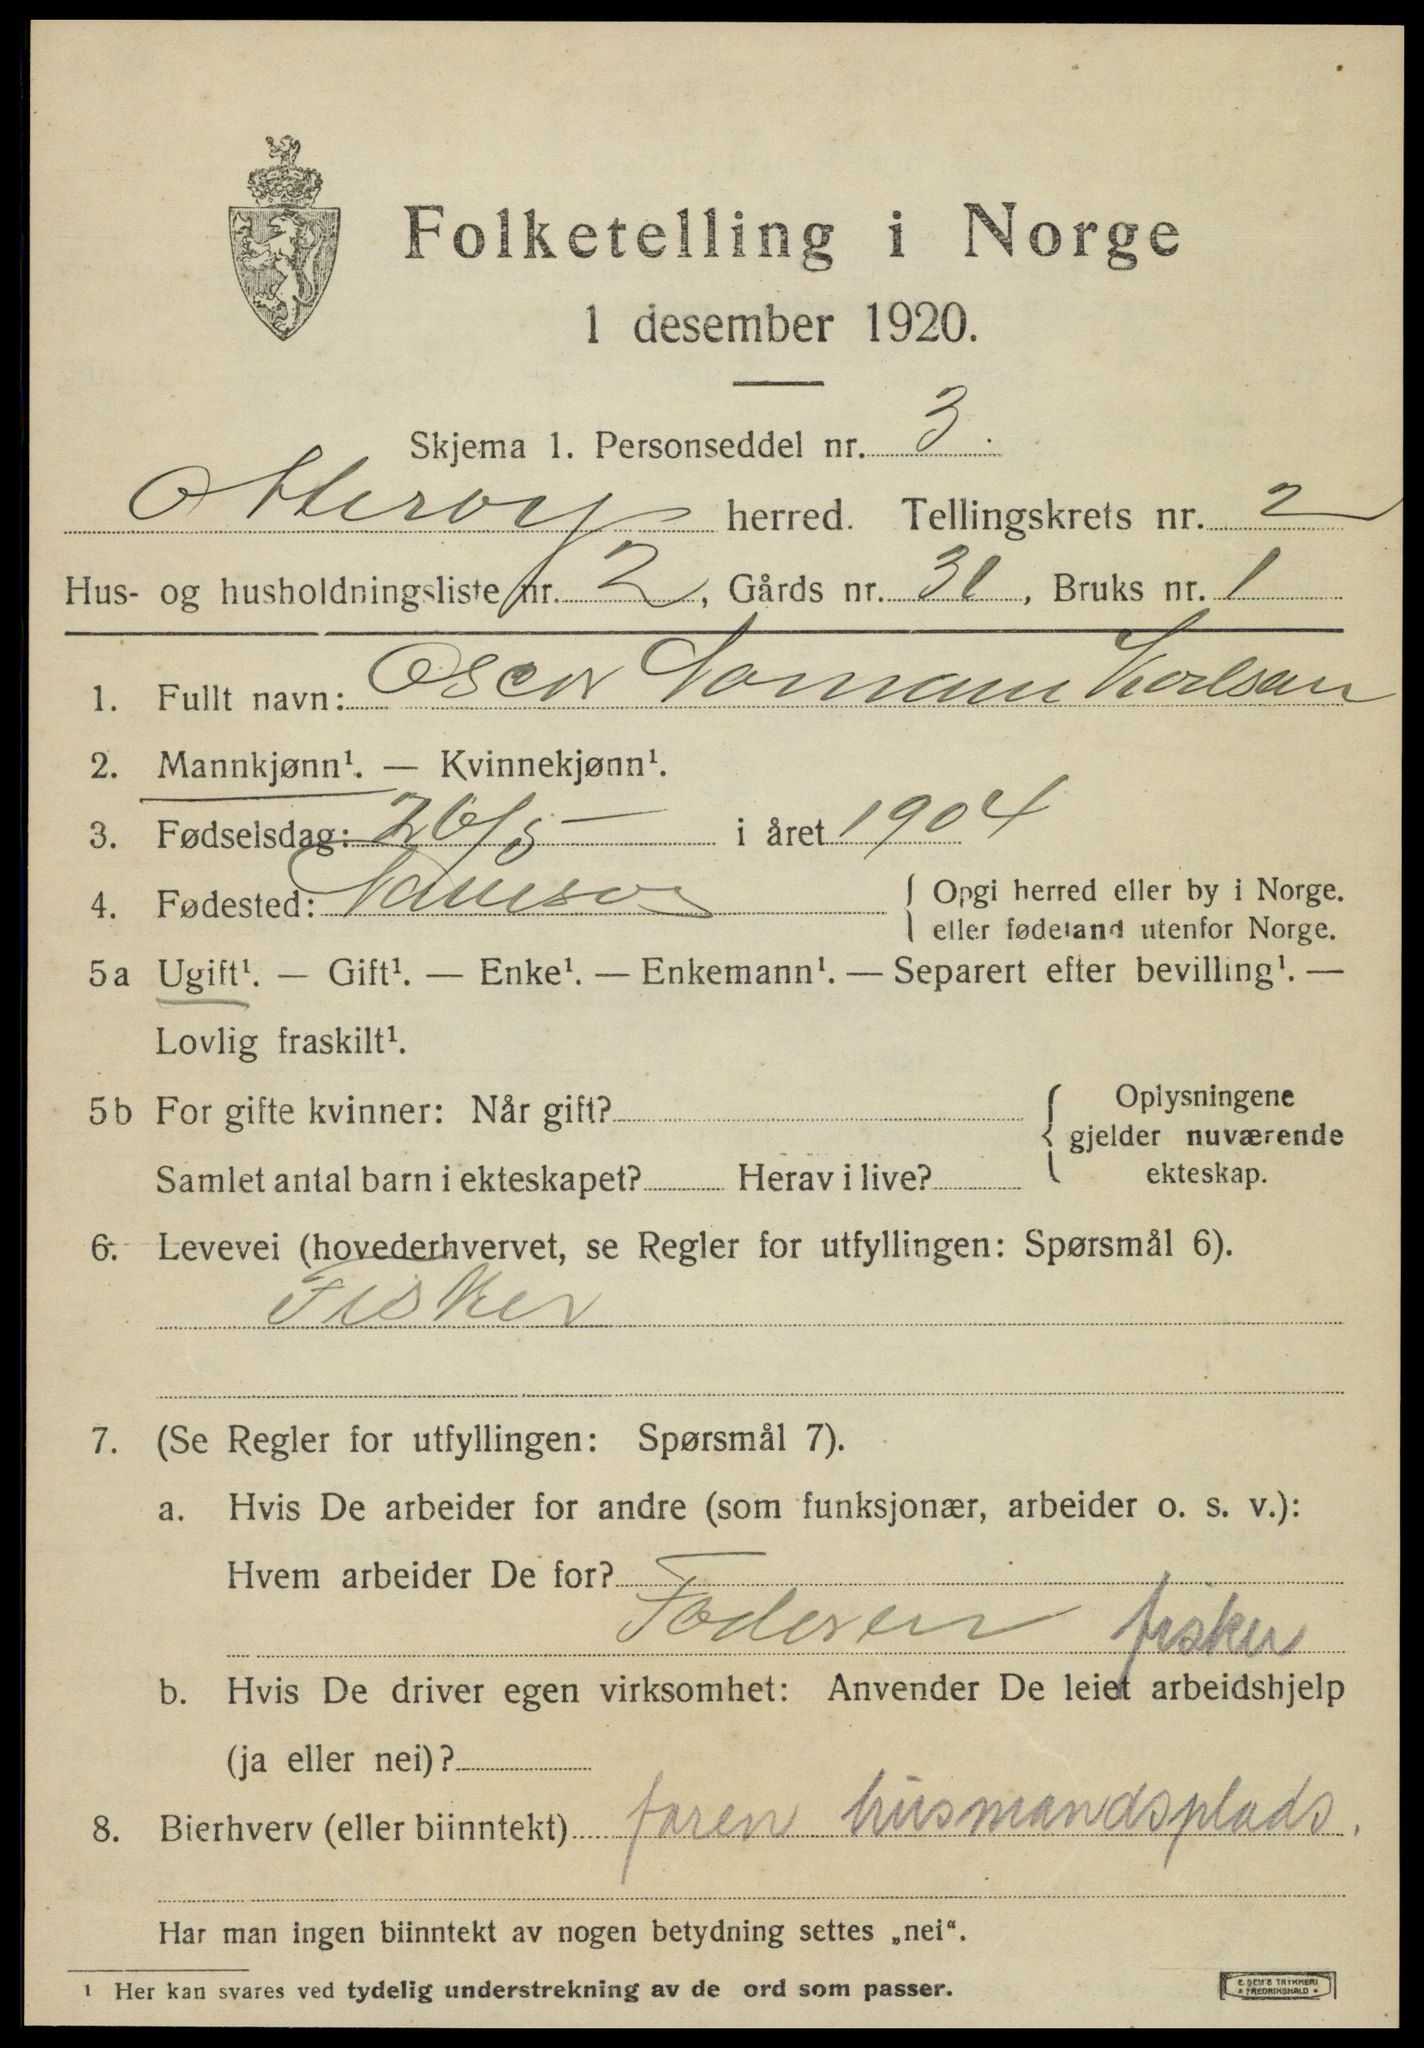 Folketelling i Norge
1 desember 1920.
Skjema 1. Personseddel nr. 3.
Otterøy herred. Tellingskrets nr. 2
Hus- og husholdningsliste nr. 2, Gårds nr. 31, Bruks nr. 1
1. Fullt navn: Oscar Karlsen
2. Mannkjønn¹. — Kvinnekjønn¹.
3. Fødselsdag: 26/5 i året 1904
4. Fødested: Namsos { Opgi herred eller by i Norge.
eller fødeland utenfor Norge.
5a Ugift¹. — Gift¹. — Enke¹. — Enkemann¹. — Separert efter bevilling¹. —
Lovlig fraskilt¹.
5b For gifte kvinner: Når gift? { Oplysningene
gjelder nuværende
Samlet antal barn i ekteskapet? Herav i live? ekteskap.
6. Levevei (hovederhvervet, se Regler for utfyllingen: Spørsmål 6).
Fisker
7. (Se Regler for utfyllingen: Spørsmål 7).
a. Hvis De arbeider for andre (som funksjonær, arbeider o. s. v.):
Hvem arbeider De for?
Faderen fisker
b. Hvis De driver egen virksomhet: Anvender De leiet arbeidshjelp
(ja eller nei)?
8. Bierhverv (eller biinntekt) faren husmandsplads.
Har man ingen biinntekt av nogen betydning settes „nei“.
¹ Her kan svares ved tydelig understrekning av de ord som passer.
E. SEM'S TRYKKERI
* FREDRIKSHALD *